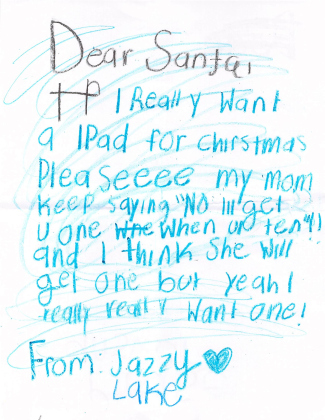 Dear Santa,
I Really Want
a IPad for chirstmas
Pleaseeee my mom
keep saying "NO Ill get
u one when ur ten"!!
and I think She will
get one but yeah!
really really want one!
From: Jazzy ♥
Lake